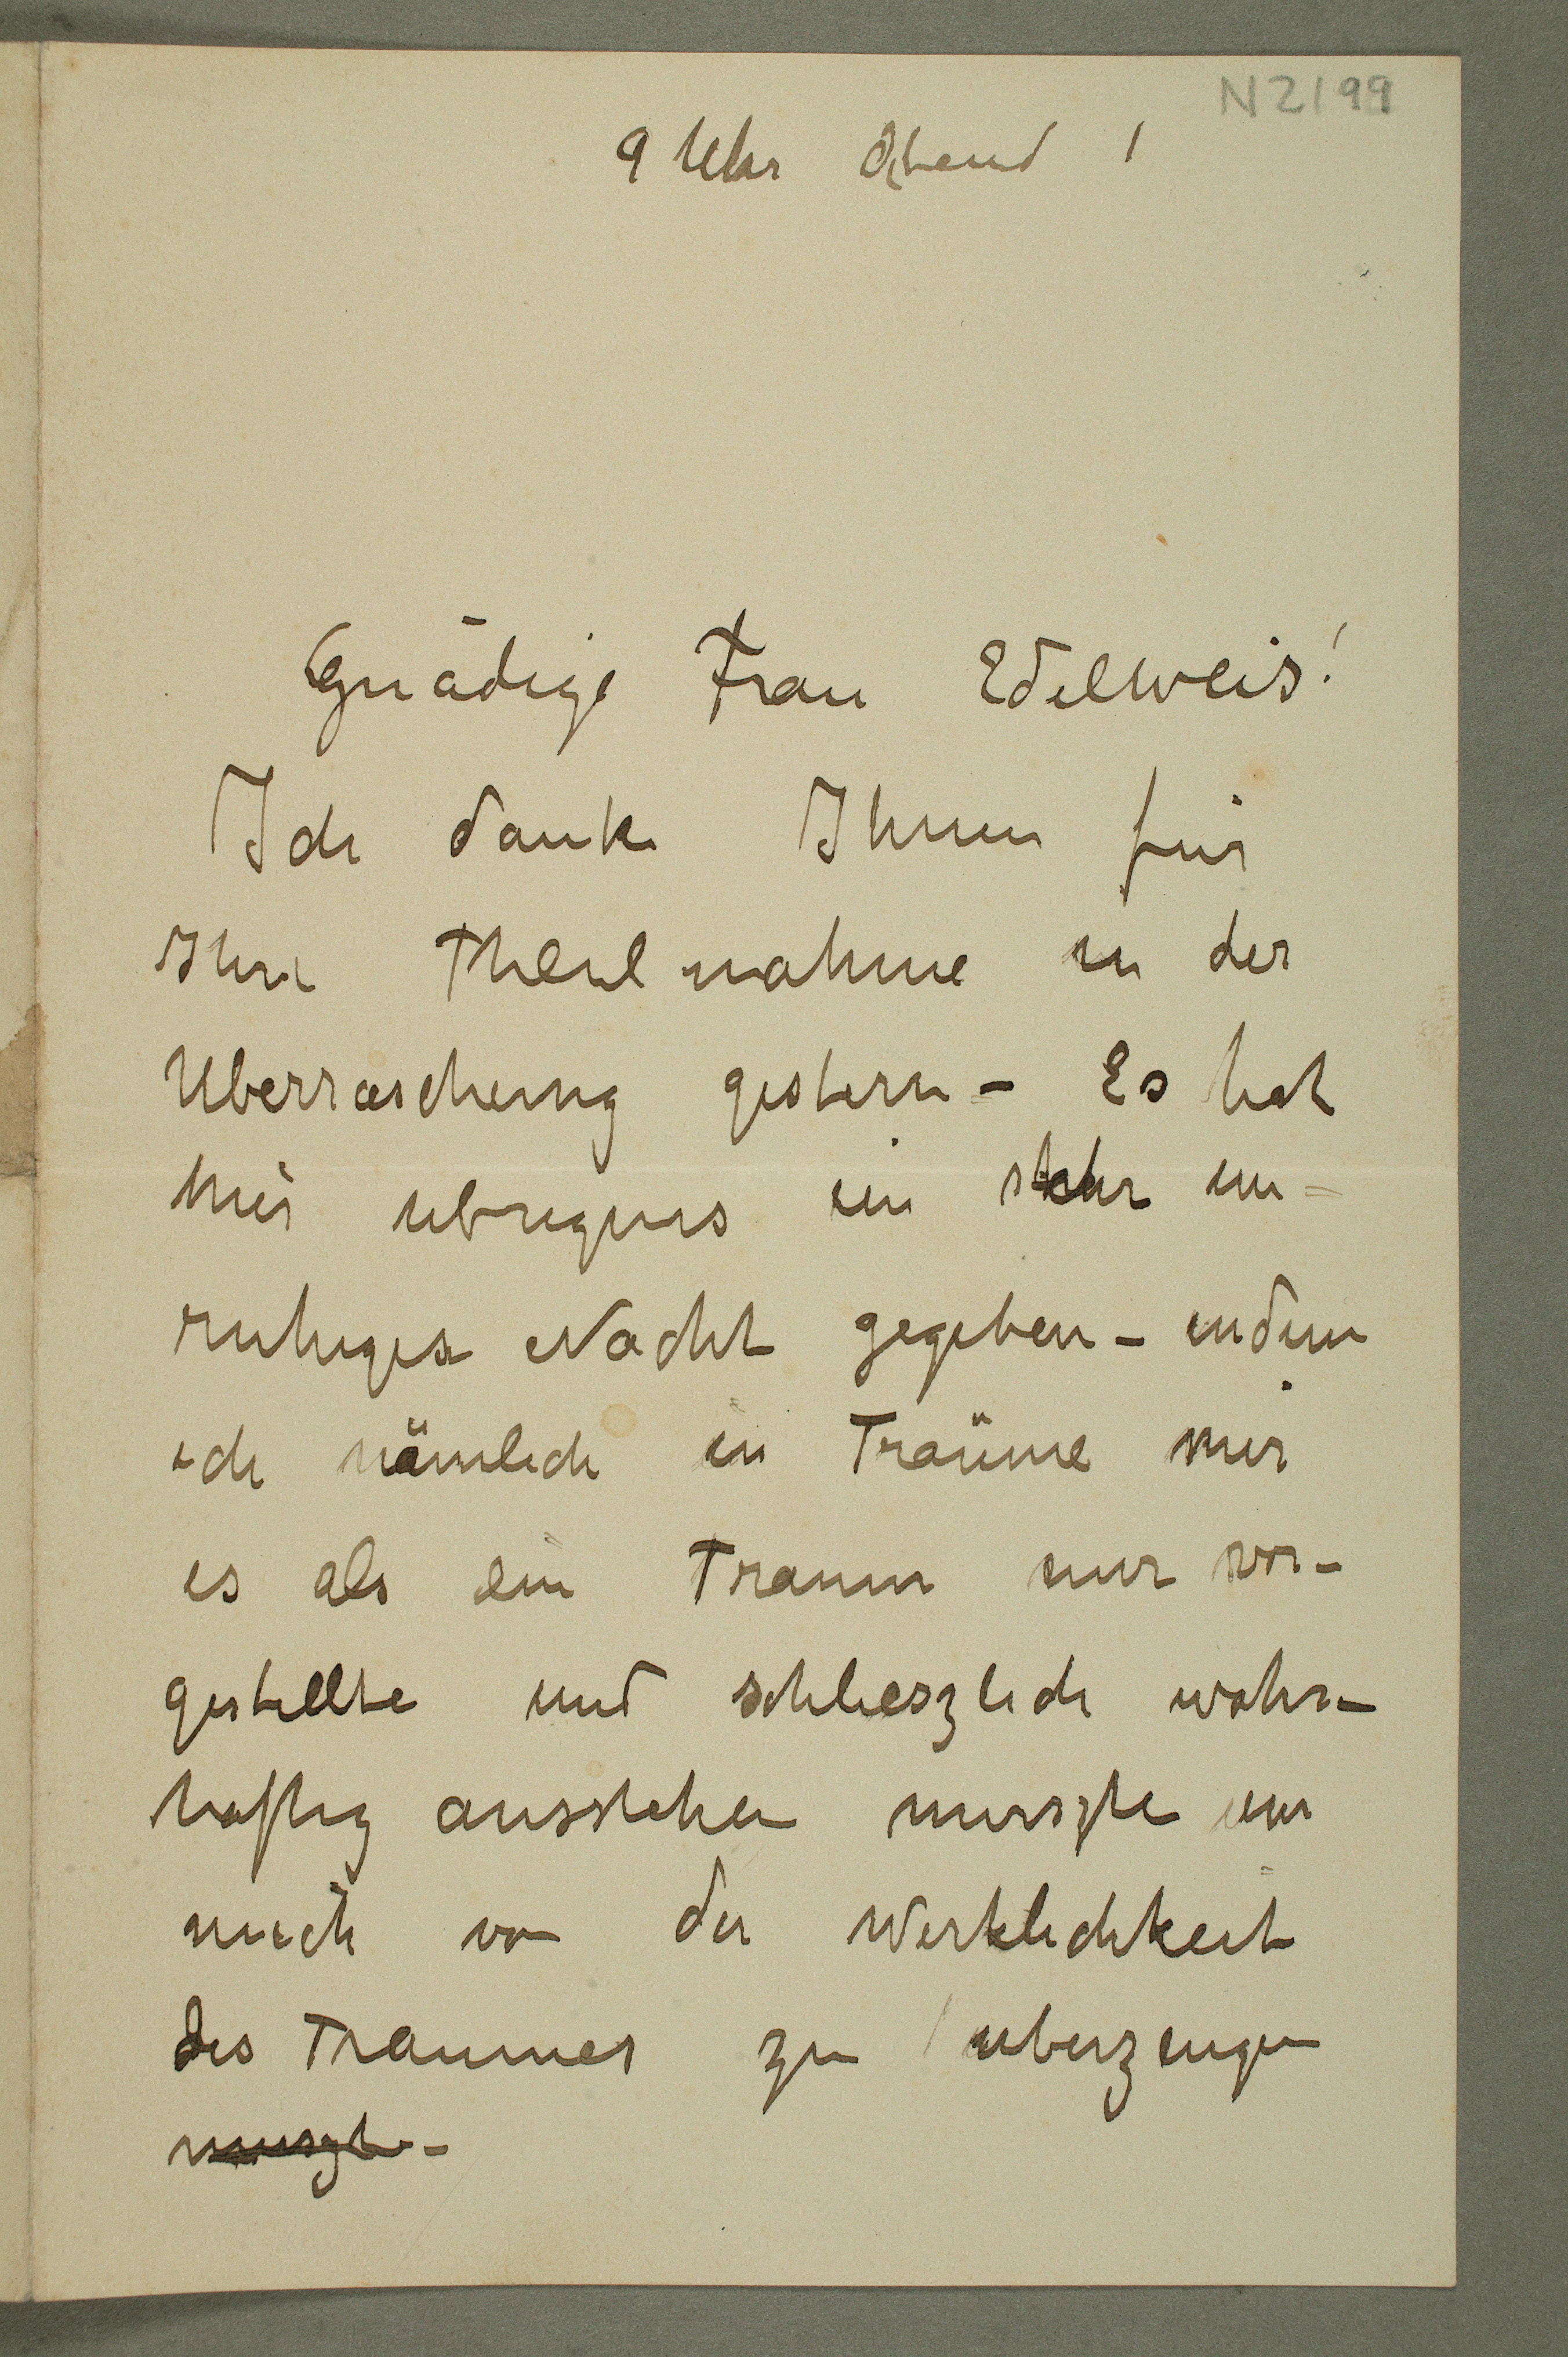 N 2199
9 Uhr Abend!
Gnädige Frau Edelweis!
Ich danke Ihnen für
Ihre Theilnahme in der
Uberraschung gestern – Es hat
mir ubrigens ein sehr un=
ruhiges Nacht gegeben – indem
ich nämlich in Traüme mir
es als ein Traum nur vor–
gestellte und schlieszlich wahr–
haftig ausstehen muszte um
mich von der Wirklichkeit
des Traumes zu uberzeugen
muszte –